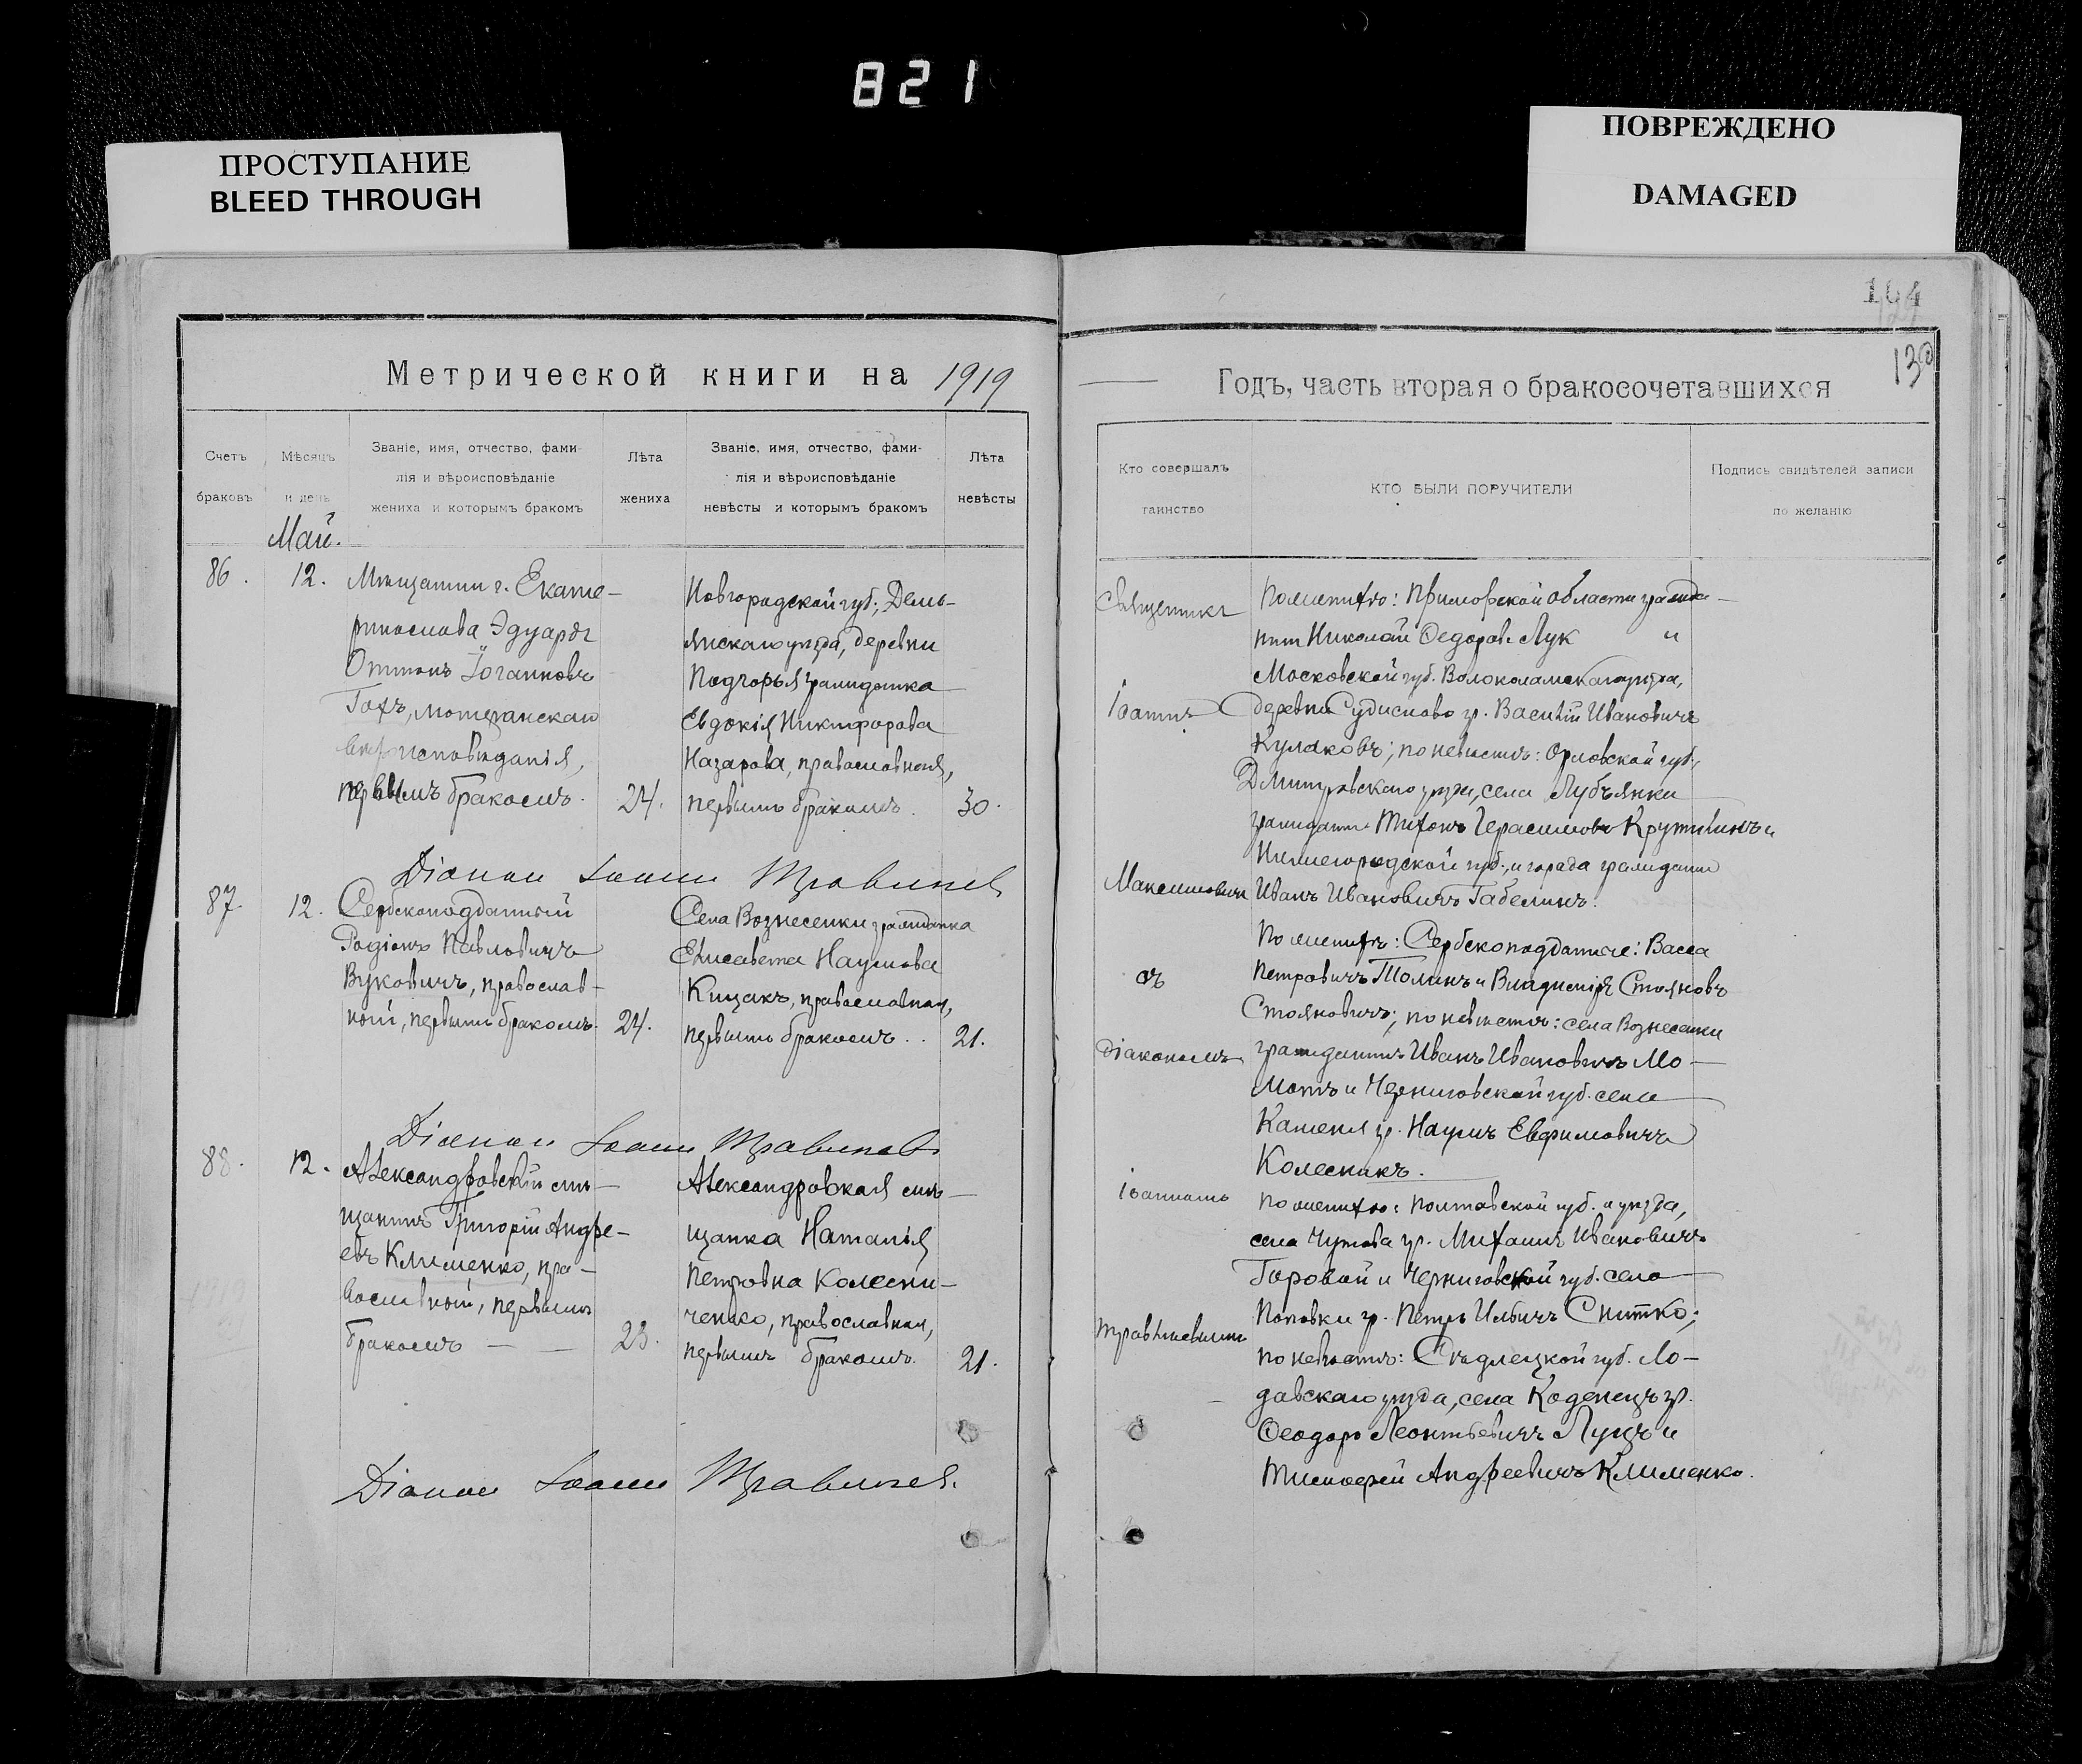 821
ПРОСТУПАНИЕ
BLEED THROUGH
ПОВРЕЖДЕНО
DAMAGED
Метрической книги на 1919
Счетъ браковъ
Мѣсяцъ и день
Званіе, имя, отчество, фами-
лія и вѣроисповѣданіе
жениха и которымъ бракомъ
Лѣта
жениха
Званіе, имя, отчество, фами-
лія и вѣроисповѣданіе
невѣсты и которымъ бракомъ
Лѣта
невѣсты
Май.
86.
12.
Мѣщанинъ г. Екате-
ринослава Эдуардъ
Оттонъ Іоганновъ
Гохъ, лютеранскаго
вѣроисповѣданія,
первымъ бракомъ.
24.
Новгородской губ., Демь-
янскаго уѣзда, деревни
Подгорья гражданка
Евдокія Никифорова
Назарова, православная,
первымъ бракомъ.
30.
Діакон Іоанн Травинскій
87.
12.
Сербскоподданный
Родіонъ Павловичъ
Вуковичъ, православ-
ный, первымъ бракомъ.
24.
Села Вознесенки гражданка
Елисавета Наумова
Кицакъ, православная,
первымъ бракомъ..
21.
88.
12.
Александровскій мѣ-
щанинъ Григорій Андре-
евъ Клименко, пра-
вославный, первымъ
бракомъ — —
23.
Александровская мѣ-
щанка Наталія
Петровна Колесни-
ченко, православная,
первымъ бракомъ.
21.
130
Годъ, часть вторая о бракосочетавшихся
Кто совершалъ
таинство
КТО БЫЛИ ПОРУЧИТЕЛИ
Подпись свидѣтелей записи
по желанію
Священникъ
Іоаннъ
Максимовичъ
съ
діакономъ
Іоанномъ
По женихѣ: Приморской области гражда-
нинъ Николай Федоровъ Лук и
Московской губ. Волоколамскаго уѣзда,
деревни Судислово гр. Василій Ивановичъ
Кулаковъ; по невѣстѣ: Орловской губ.,
Дмитровскаго уѣзда, села Лубъянки
гражданинъ Тихонъ Герасимовъ Крутилинъ и
Нижегородской губ., и города гражданинъ
Иванъ Ивановичъ Габелинъ.
По женихѣ: Сербскоподданные: Васса
Петровичъ Толинъ и Владиміръ Стояновъ
Стояновичъ; по невѣстѣ: села Вознесенки
гражданинъ Иванъ Ивановичъ Мо-
мотъ и Черниговской губ. села
Каменя гр. Наумъ Евфимовичъ
Колесникъ.
По женихѣ: Полтавской губ. и уѣзда,
села Чутова гр. Михаилъ Ивановичъ
Горовой и Черниговской губ. села
Поповки гр. Петръ Ильичъ Снитко;
по невѣстѣ: Сѣдлецкой губ. Ло-
давскаго уѣзда, села Коденецъ гр.
Ѳеодоръ Леонтьевичъ Луцъ и
Тимофей Андреевичъ Клименко.